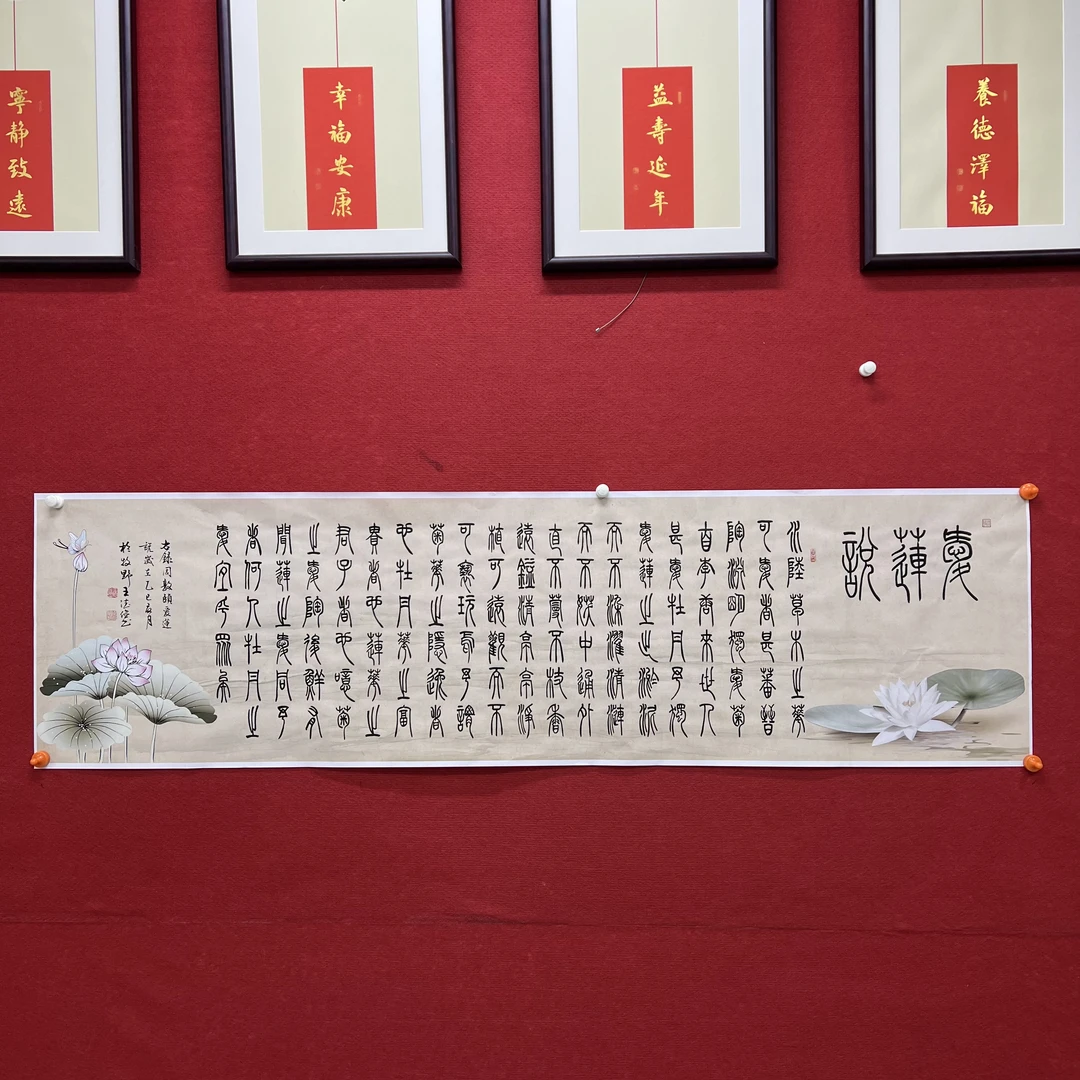 寧静致遠
幸福安康
益壽延年
養德澤福
愛蓮說
水陸草木之華
可愛者甚蕃晉
陶淵明獨愛菊
自李唐來世人
甚愛牡丹予獨
愛蓮之出淤泥
而不染濯清漣
而不妖中通外
直不蔓不枝香
遠益清亭亭淨
植可遠觀而不
可褻玩焉予謂
菊華之隱逸者
也牡丹華之富
貴者也蓮華之
君子者也噫菊
之愛陶後鮮有
聞蓮之愛同予
者何人牡丹之
愛宜乎眾矣
右錄周敦頤愛蓮
說歲在乙巳夏月
於牧野王